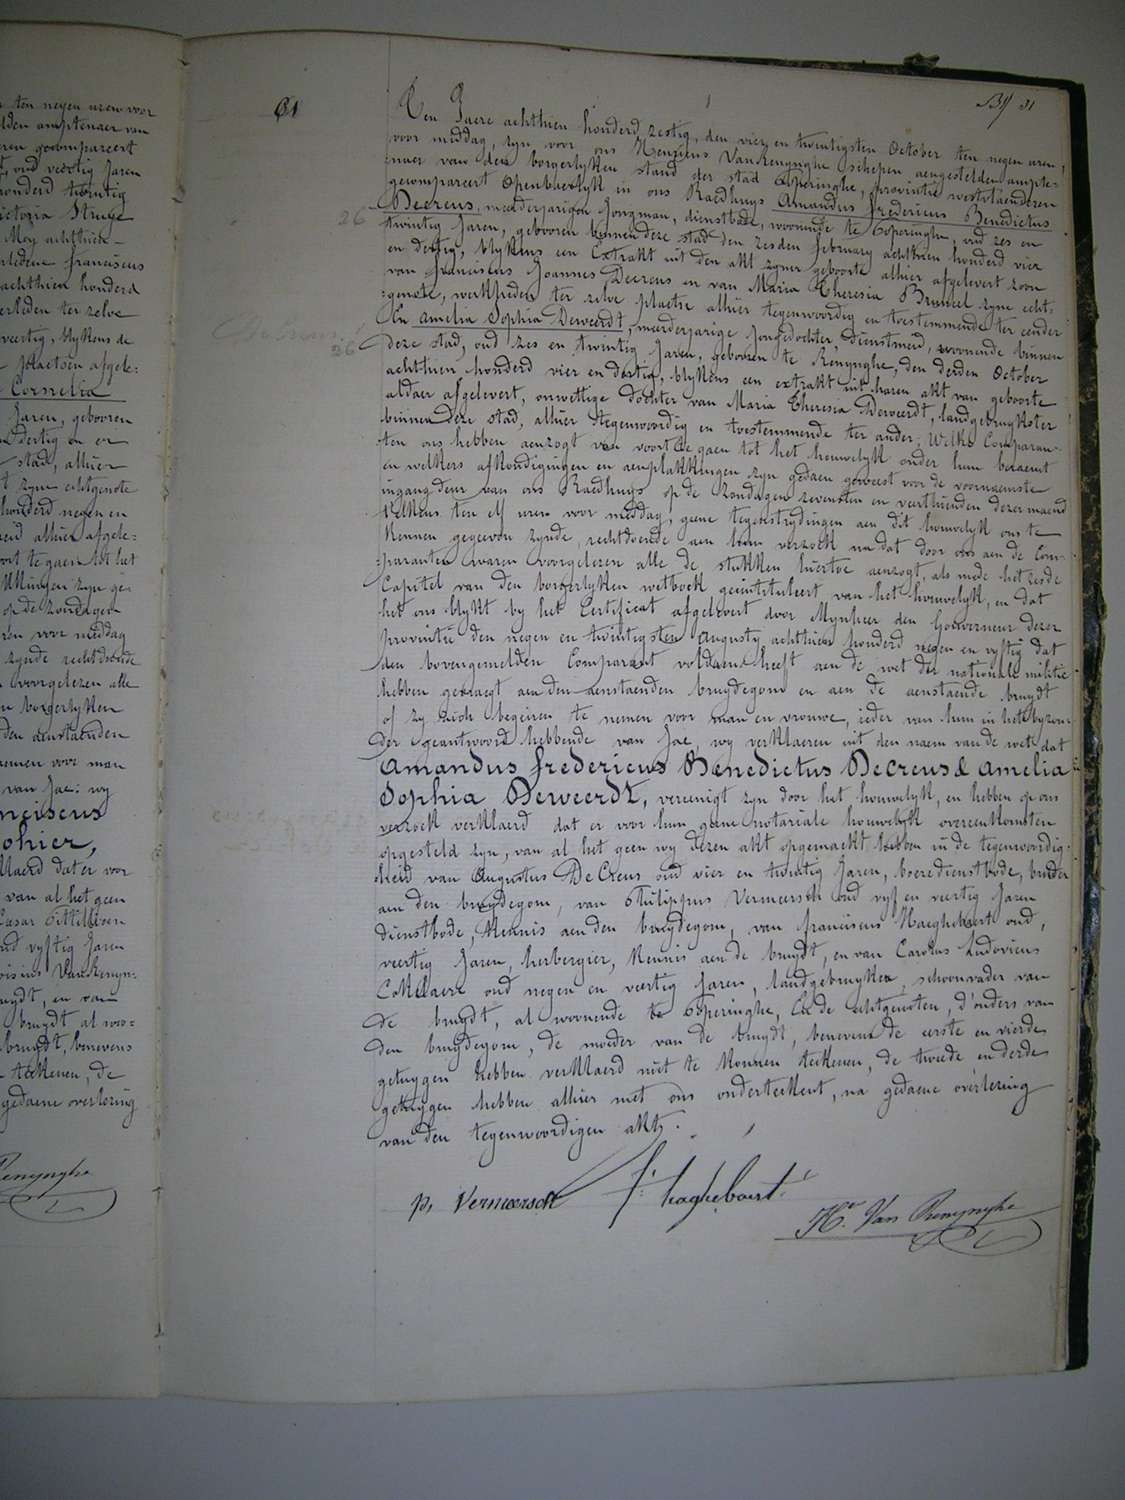 n ten negen uren voor
lden amptenaer van
ren gecompareert
oud veertig Jaren
honderd twintig
ictoria Struye
Mey achthien
erledene franciscus
achthien honderd
erleden ter zelve
veertig, blykens de
plaetsen afgele:
Cornelia
Jaren, gebooren
dertig en er
stad, alhier
zyne echtgenote
honderd negen en
eerd alhier afgele:
oort te gaen tot het
kkingen zyn ge:
op de zondagen
ren voor middag
zynde rechtdoende
voorgelezen alle
n borgerlyken
den aenstaenden
nemen voor man
van Jae: wy
nciscus
ohier,
klaerd dat er voor
van al het geen
Cesar
oud vyftig Jaren
oisius Van Renyn:
bruydt, en van
bruydt al woo:
bruydt, benevens
teekenen, de
gedaene overlezing
Renynghe
81
By 31
Den Jaere achthien honderd zestig, den vier en twintigsten October ten negen uren,
voor middag, zyn voor ons Henricus Van Renynghe schepen aengestelden ampte:
:naer van den borgerlyken stand der stad Poperinghe, provintie westvlaenderen
gecompareert openbaerlyk in ons Raedhuys Amandus fredericus Benedictus
26
Decreus, meerderjarigen Jongman, dienstbode, woonende te Poperinghe, oud zes en
twintig Jaren, gebooren binnen deze stad den zesden february achthien honderd vier
en dertig, blykens een Extrakt uit den akt zyner geboorte alhier afgelevert zoon
van franciscus Joannes Decreus en van Maria Theresia Bruneel zyne echt:
:genote, werklieden ter zelve plaetse alhier tegenwoordig en toestemmende ter eender
En Amelia Sophia Deweerdt, meerderjarige Jongedochter, dienstmeid, woonende binnen
26
deze stad, oud zes en twintig Jaren, gebooren te Renynghe, den derden October
achthien honderd vier en dertig, blykens een extrakt uit haren akt van geboorte
aldaer afgelevert, onwettige dochter van Maria Theresia Deweerdt, landgebruykster
binnen deze stad, alhier tegenwoordig en toestemmende ter ander; Welke Comparan-
ten ons hebben aenzogt van voort te gaen tot het houwelyk onder hun beraemt
en welkers afkondigingen en aenplakkingen zyn gedaen geweest voor de voornaemste
ingangdeur van ons Raedhuys op de zondagen zevensten en veerthienden dezer maend
telkens ten elf uren voor middag, geene tegenstrydingen aen dit houwelyk ons te
kennen gegeven zynde, rechtdoende aen hun verzoek na dat door ons aen de Com-
:paranten waren voorgelezen alle de stukken hiertoe aenzogt, als mede het zesde
Capitel van den borgerlyken wetboek geintituleert van het houwelyk, en dat
het ons blykt by het Certificat afgelevert door Mynheer den Gouverneur dezer
provintie den negen en twintigsten augusty achthien honderd negen en vyftig dat
den bovengemelden Comparant voldaen heeft aen de wet der nationale militie
hebben gevraegt aen den aenstaenden bruydegom en aen de aenstaende bruydt
of zy zich begeiren te nemen voor man en vrouwe, ieder van hun in het byzon-
der geantwoord hebbende van Jae, wy verklaeren uit den naem van de wet dat
Amandus fredericus Benedictus Decreus & Amelia
Sophia Deweerdt, vereenigt zyn door het houwelyk, en hebben op ons
verzoek verklaerd dat er voor hun geene notariale houwelyk overeenkomsten
opgesteld zyn, van al het geen wy dezen akt opgemaekt hebben in de tegenwoordig:
:heid van Augustus De Creus oud vier en twintig Jaren, boeredienstbode, broeder
aen den bruydegom, van Philippus Vermeersch oud vyf en veertig Jaren
dienstbode, kennis aen den bruydegom, van franciscus Haeghebaert oud,
veertig Jaren, herbergier, kennis aen de bruydt, en van Carolus Ludovicus
Cokelaere oud negen en veertig Jaren, landgebruyker, schoonvader van
de bruydt, al woonende te Poperinghe, de echtgenoten, d'ouders van
den bruydegom, de moeder van de bruydt, benevens de eerste en vierde
getuygen hebben verklaerd niet te konnen teekenen, de tweede en derde
getuygen hebben alhier met ons onderteekent, na gedaene overlezing
van den tegenwoordigen akt.
p, Vermeersch
f: haghebaert
He. Van Renynghe